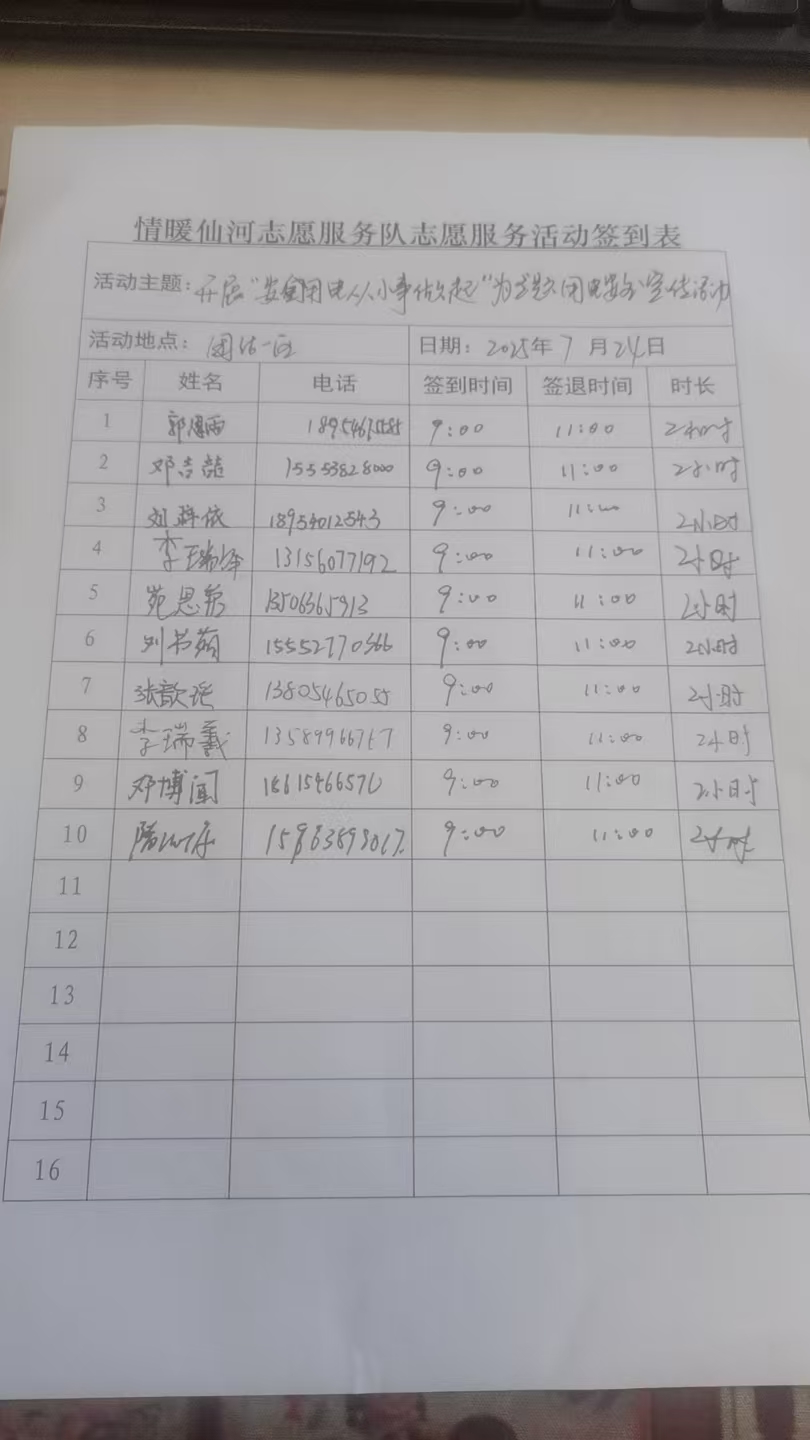 情暖仙河志愿服务队志愿服务活动签到表
活动主题: 开展"安全用电从小事做起"为主题用电安全宣传活动
活动地点: 团结一区 日期: 2025年 7 月 24日
序号 姓名 电话 签到时间 签退时间 时长
1 9:00 11:00 2小时
2 邓吉喆 15553828000 9:00 11:00 2小时
3 刘 依 18954012543 9:00 11:00 2小时
4 李瑞泽 13156077192 9:00 11:00 2小时
5 苑思 13506365913 9:00 11:00 2小时
6 刘书 15552770366 9:00 11:00 2小时
7 张歆瑶 13805465055 9:00 11:00 2小时
8 李瑞羲 13589966767 9:00 11:00 2小时
9 邓博闻 18615466570 9:00 11:00 2小时
10 9:00 11:00 2小时
11
12
13
14
15
16